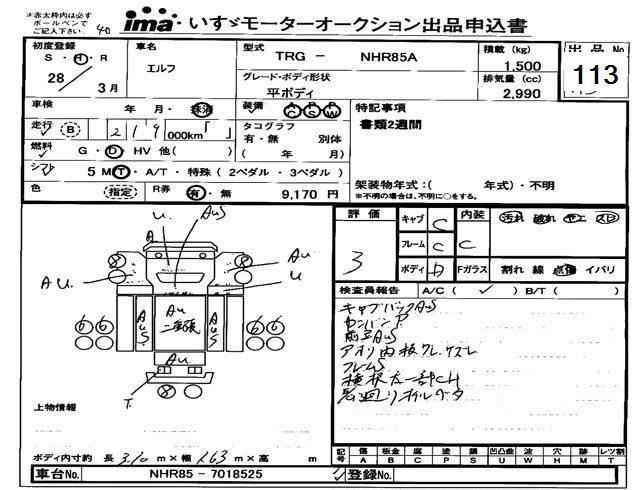 ※赤太枠内は必ず
ボールペンで
ご記入下さい
40
ima いすゞモーターオークション出品申込書
出品No
113
初度登録
S・H・R
28
3月
車名
エルフ
型式
TRG － NHR85A
グレード・ボディ形状
平ボディ
積載 (kg)
1,500
排気量 (cc)
2,990
車検
年 月・抹消
装備
AC PS PW
走行
B
219
000km「 」
タコグラフ
有・無 別体
( 年 月)
燃料
G・D HV 他( )
シフト
5 MT・A/T・特殊 ( 2ペダル・3ペダル )
色
(指定)
R券
有・無
9,170 円
特記事項
書類2週間
架装物年式：( 年式)・不明
※不明の場合は、不明に○をする。
評価
3
キャブ C
フレーム C
ボディ D
内装
C
汚れ 破れ ヤニ スレ
Fガラス 割れ 線 点傷 イバリ
検査員報告 A/C ( ✓ ) B/T ( )
キャブバックAuS
カンバンP.
前立AuS
アオリ内板ワレ.ケズレ
フレームS
横根太一部CH
U. AuS
A.
8 8
AU. Au
U
AuS
Au
二重張
AuS
6 6 6 6
Au.
T.
8
上物情報
ボディ内寸約 長 3.10 m × 幅 1.63 m × 高 m
記号 傷 板金 腐 塗 錆 凹凸曲 波 穴 跡 レツ割
A B C P S U W H M T
車台No.
NHR85 － 7018525
登録No.